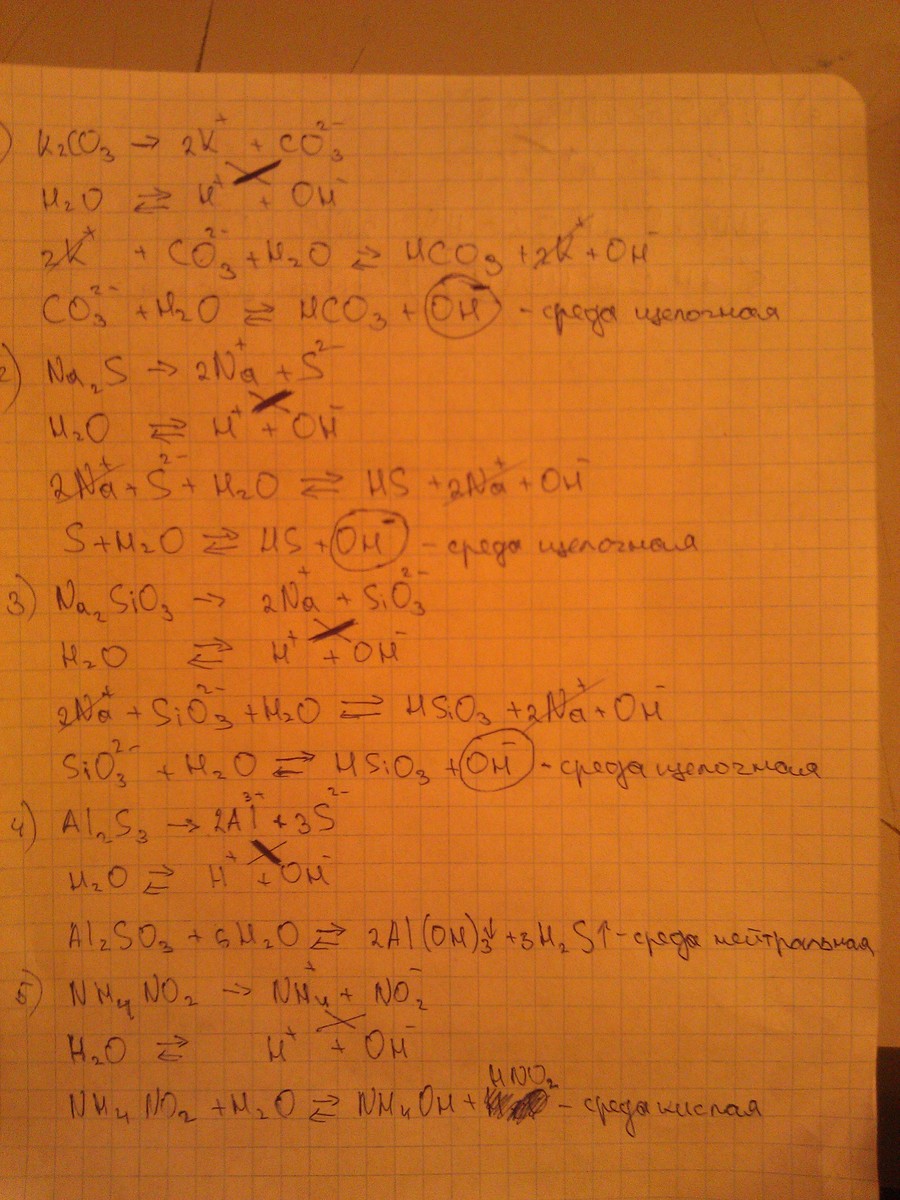 ) K₂CO₃ → 2K⁺ + CO₃²⁻
H₂O ⇄ H⁺ + OH⁻
2K⁺ + CO₃²⁻ + H₂O ⇄ HCO₃ + 2K⁺ + OH⁻
CO₃²⁻ + H₂O ⇄ HCO₃ + OH⁻ - среда щелочная
2) Na₂S → 2Na⁺ + S²⁻
H₂O ⇄ H⁺ + OH⁻
2Na⁺ + S²⁻ + H₂O ⇄ HS + 2Na⁺ + OH⁻
S + H₂O ⇄ HS + OH⁻ - среда щелочная
3) Na₂SiO₃ → 2Na⁺ + SiO₃²⁻
H₂O ⇄ H⁺ + OH⁻
2Na⁺ + SiO₃²⁻ + H₂O ⇄ HSiO₃ + 2Na⁺ + OH⁻
SiO₃²⁻ + H₂O ⇄ HSiO₃ + OH⁻ - среда щелочная
4) Al₂S₃ → 2Al³⁺ + 3S²⁻
H₂O ⇄ H⁺ + OH⁻
Al₂SO₃ + 6H₂O ⇄ 2Al(OH)₃↓ + 3H₂S↑ - среда нейтральная
5) NH₄NO₂ → NH₄⁺ + NO₂⁻
H₂O ⇄ H⁺ + OH⁻
NH₄NO₂ + H₂O ⇄ NH₄OH + HNO₂ - среда кислая